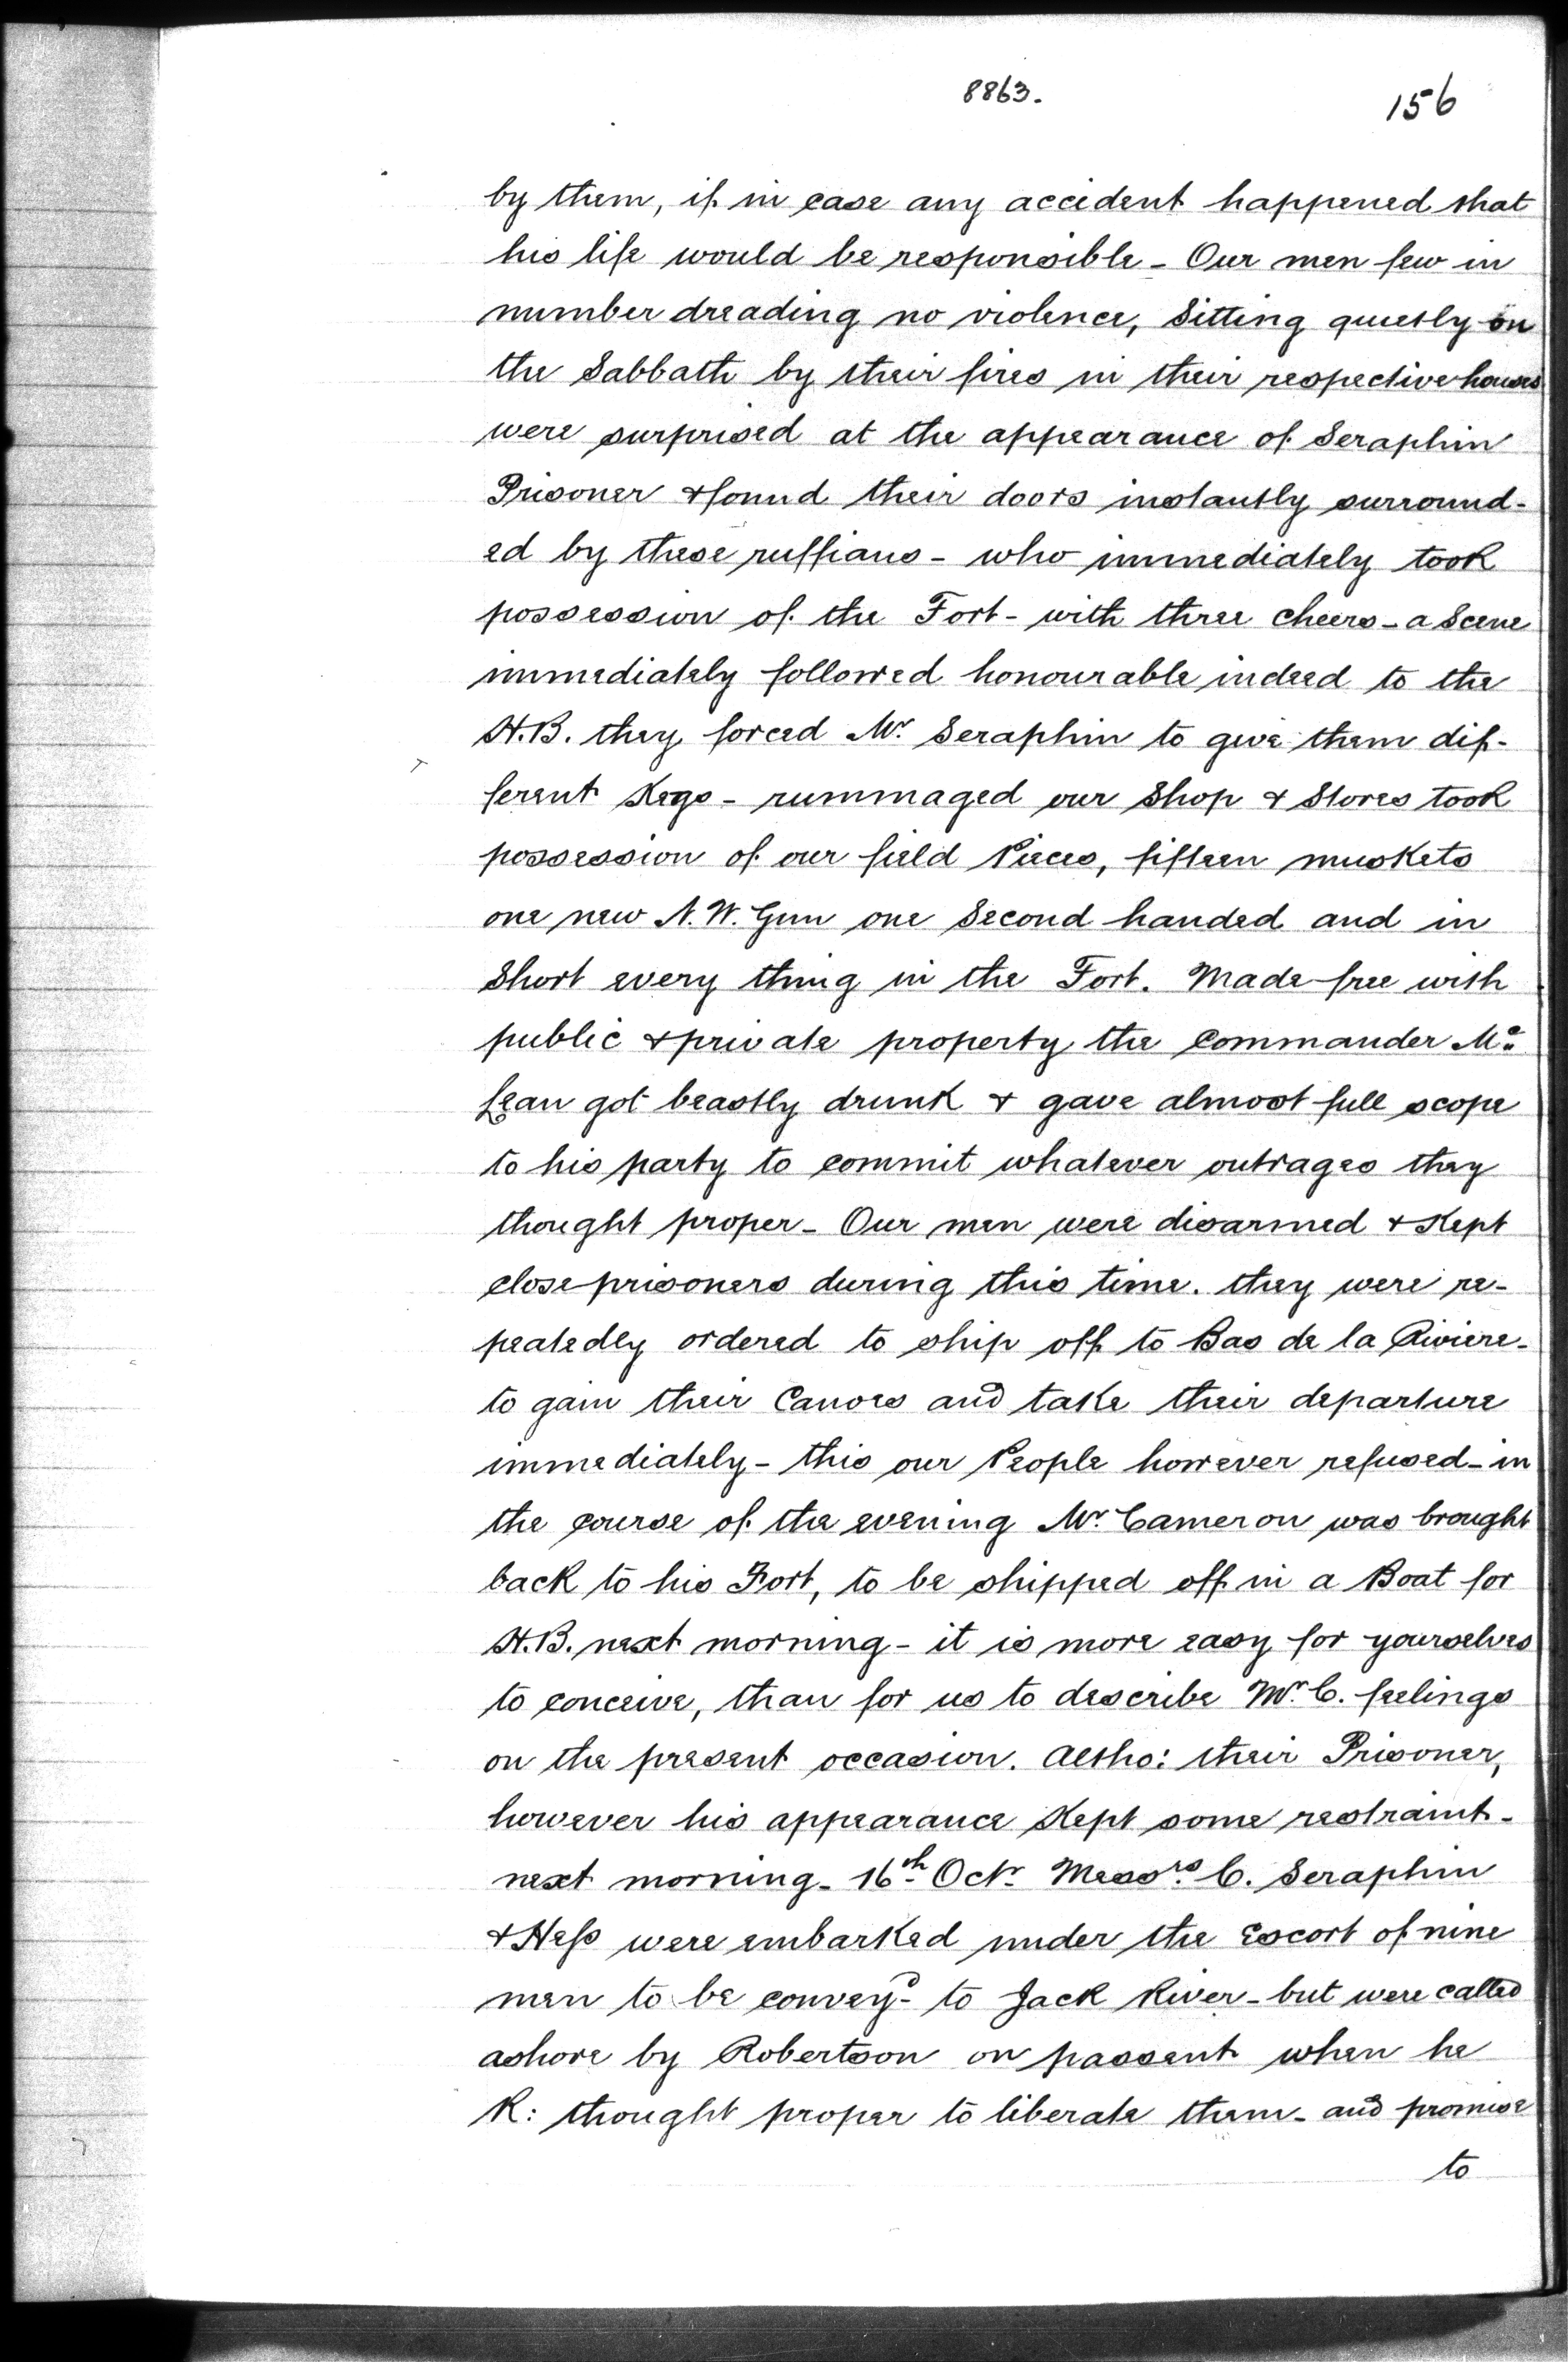 8863.
156
by them, if in case any accident happened that
his life would be responsible - Our men few in
number dreading no violence, Sitting quietly on
the Sabbath by their fires in their respective houses
were surprised at the appearance of Seraphin
Prisoner & found their doors instantly surround-
ed by these ruffians - who immediately took
possession of the Fort - with three cheers - a Scene
immediately followed honourable indeed to the
H.B. they forced Mr. Seraphin to give them dif-
ferent Kegs - rummaged our Shop & Stores took
possession of our field Pieces, fifteen muskets
one new N.W. Gun one Second handed and in
Short every thing in the Fort. Made free with
public & private property the Commander Mc.
Lean got beastly drunk & gave almost full scope
to his party to commit whatever outrages they
thought proper - Our men were disarmed & Kept
close prisoners during this time. they were re-
peatedly ordered to ship off to Bas de la Riviere -
to gain their Canoes and take their departure
immediately - this our People however refused - in
the course of the evening Mr. Cameron was brought
back to his Fort, to be shipped off in a Boat for
H.B. next morning - it is more easy for yourselves
to conceive, than for us to describe Mr. C. feelings
on the present occasion. Altho: their Prisoner,
however his appearance Kept some restraint -
next morning - 16th Octr. Messrs. C. Seraphin
& Hess were embarked under the Escort of nine
men to be convey'd to Jack River - but were called
ashore by Robertson on passent when he
R: thought proper to liberate them - and promise
to